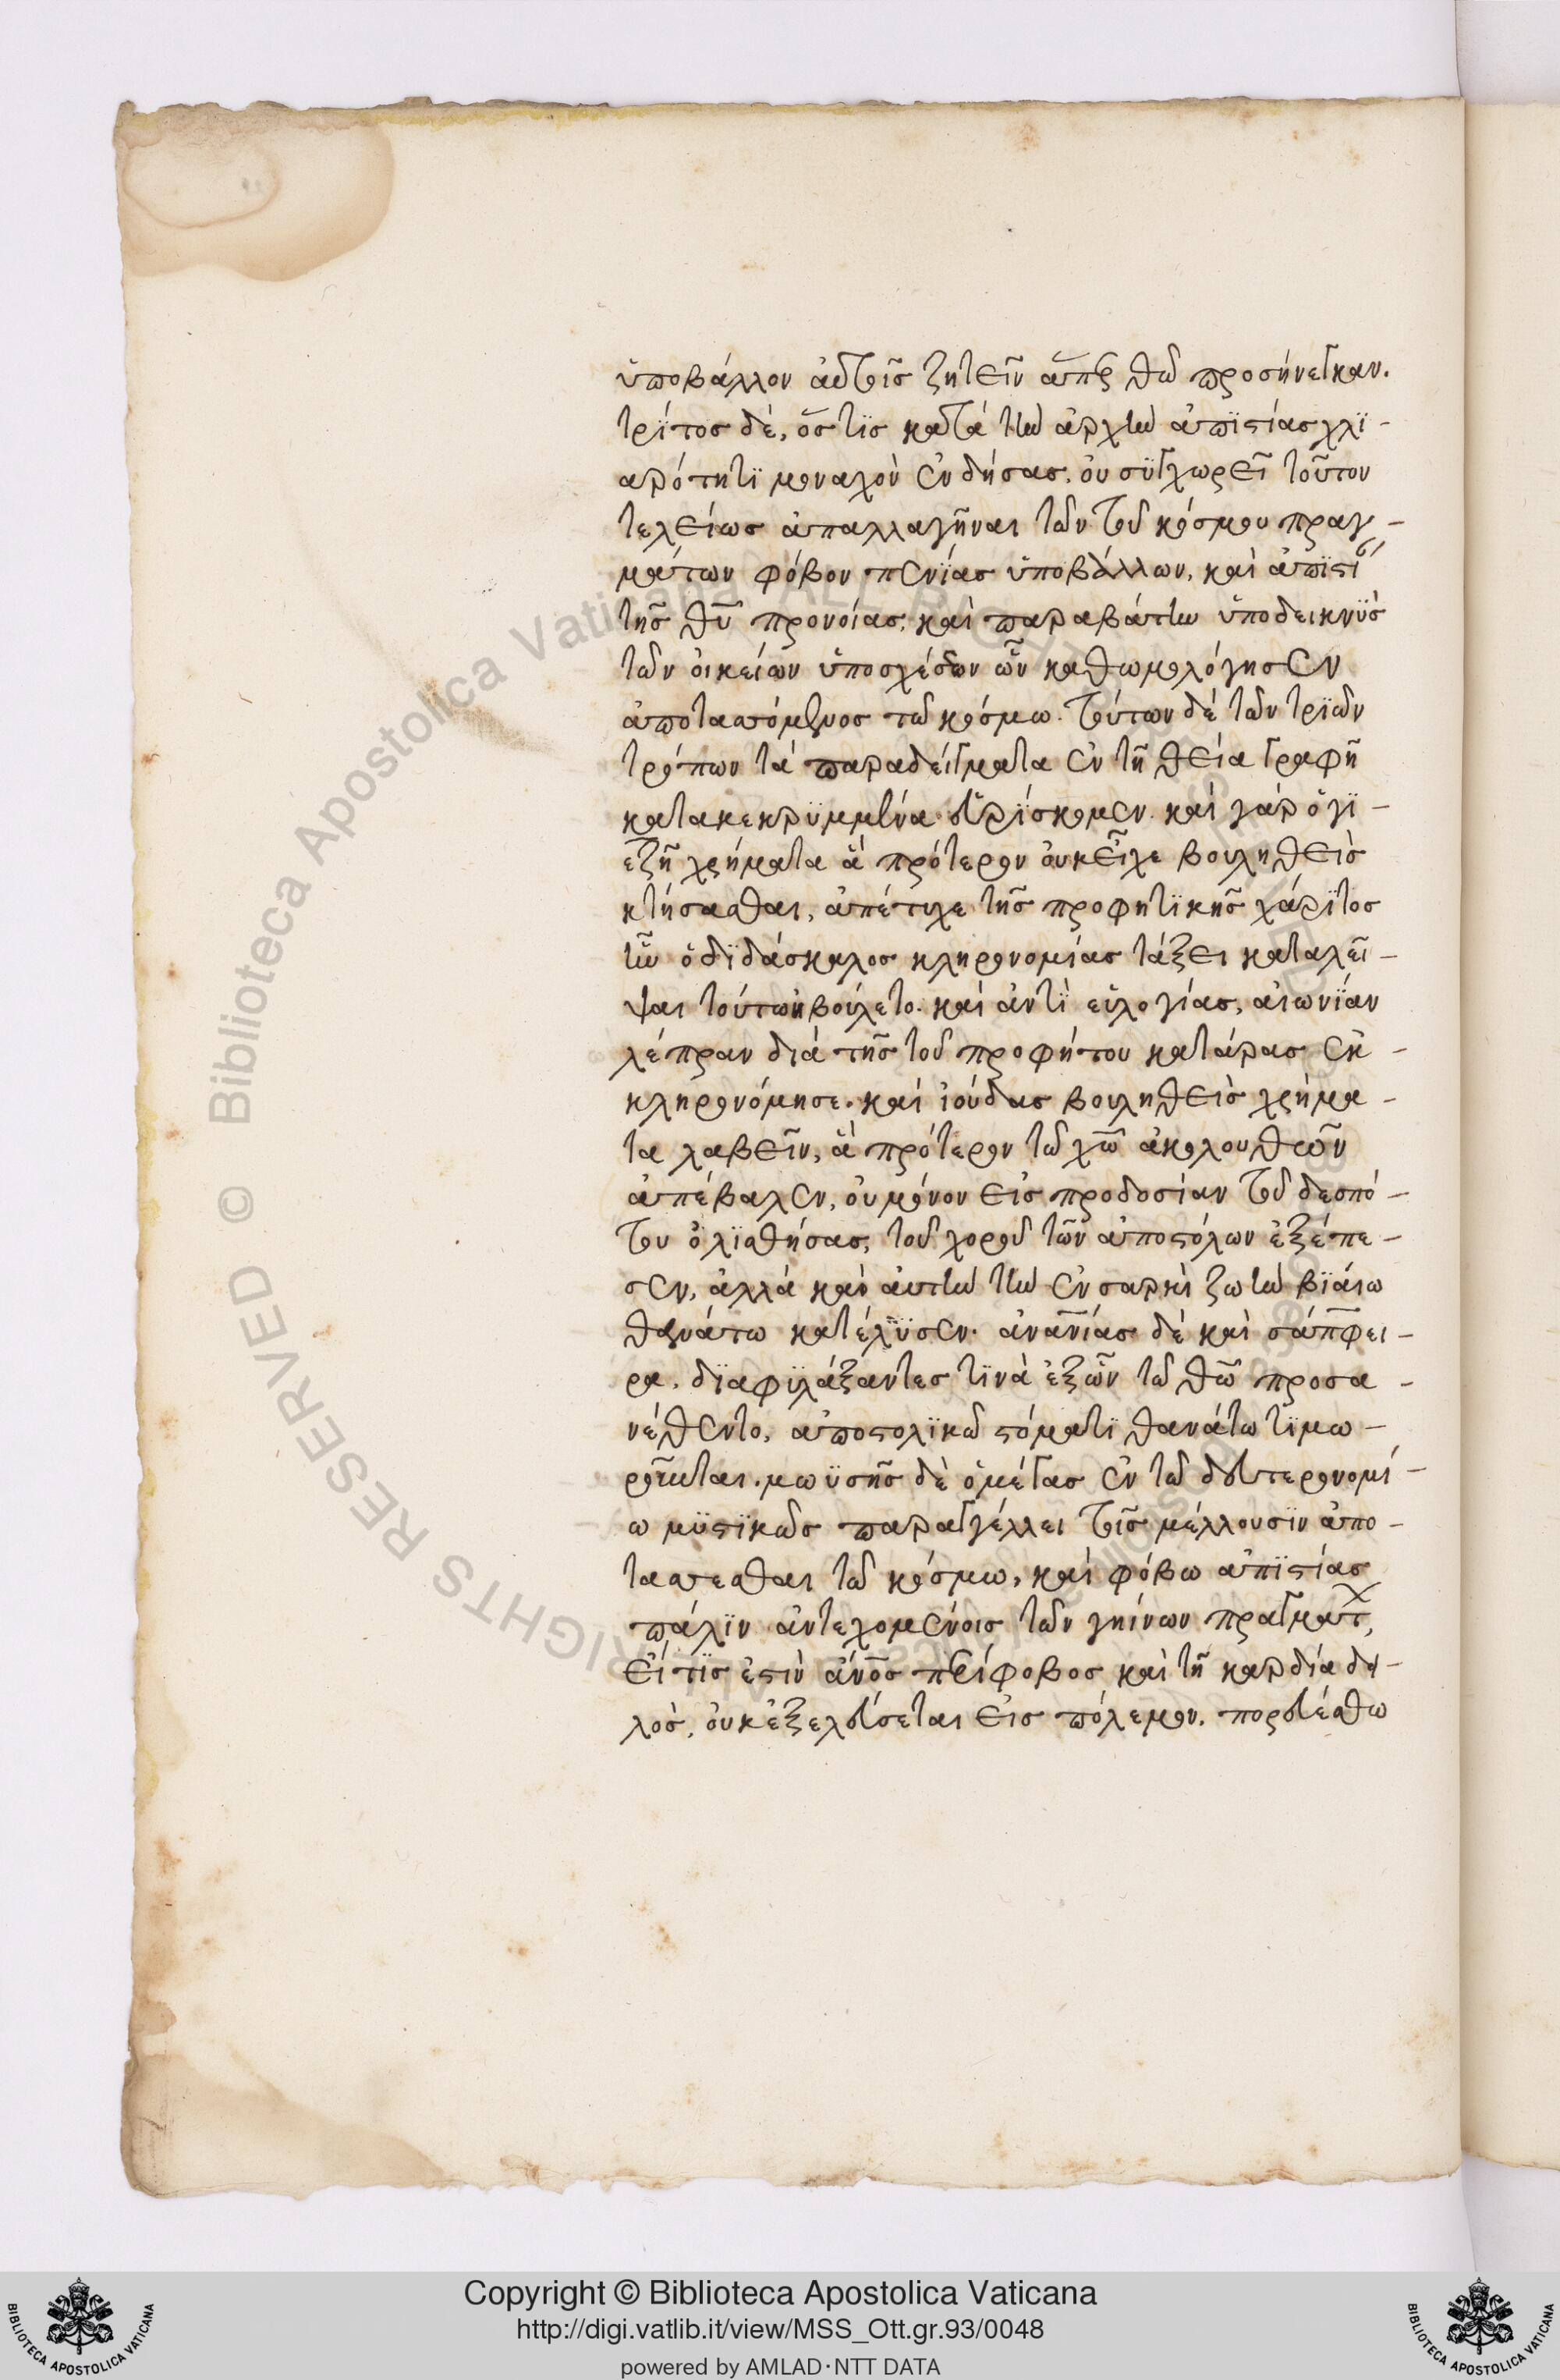 ὑποβάλλον αὐτοῖς ζητεῖν ἅπερ θω προσήνεγκαν.
τρίτος δὲ, ὅστις κατὰ τὴν ἀρχὴν ἀπιστίας χλι-
αρότητι μοναχὸν ἐνδήσας, οὐ συγχωρεῖ τοῦτον
τελείως ἀπαλλαγῆναι τῶν τοῦ κόσμου πραγ-
μάτων φόβον πενίας ὑποβάλλων, καὶ ἀπιστί
τῆς θυ προνοίας, καὶ παραβάτην ὑποδεικνὺς
τῶν οἰκείων ὑποσχέσεων ὧν καθωμολόγησεν
ἀποτασσόμενος τῶ κόσμω. τούτων δὲ τῶν τριῶν
τρόπων τὰ παραδείγματα ἐν τῆ θεία γραφῆ
κατακεκρυμμένα εὑρίσκομεν. καὶ γὰρ ὁ γι-
εζῆ χρήματα ἃ πρότερον οὐκ εἶχε βουληθεὶς
κτήσασθαι, ἀπέτυχε τῆς προφητικῆς χάριτος
ἣν ὁ διδάσκαλος κληρονομίας τάξει καταλεῖ-
ψαι τούτω ἠβούλετο. καὶ ἀντὶ εὐλογίας, αἰωνίαν
λέπραν διὰ τῆς τοῦ προφήτου κατάρας ἐκ-
κληρονόμησε. καὶ ἰούδας βουληθεὶς χρήμα-
τα λαβεῖν, ἃ πρότερον τῶ χω ἀκολουθῶν
ἀπέβαλεν, οὐ μόνον εἰς προδοσίαν τοῦ δεσπό-
του ὀλισθήσας, τοῦ χοροῦ τῶν ἀποστόλων ἐξέπε-
σεν, ἀλλὰ καὶ αὐτὴν τὴν ἐν σαρκὶ ζωὴν βιαίω
θανάτω κατέλυσεν. ἀνανίας δὲ καὶ σάπφει-
ρα, διαφυλάξαντες τινὰ ἐξ ὧν τῶ θω προσα-
νέθεντο, ἀποστολικῶ στόματι θανάτω τιμω-
ροῦνται. μωϋσῆς δὲ ὁ μέγας ἐν τῶ δευτερονομί-
ω μυστικῶς παραγγέλλει τοῖς μέλλουσιν ἀπο-
τάσσεσθαι τῶ κόσμω, καὶ φόβω ἀπιστίας
πάλιν ἀντεχομένοις τῶν γηίνων πραγμάτ,
εἴ τις ἐστὶν ἄνος περίφοβος καὶ τῆ καρδία δει-
λὸς, οὐκ ἐξελεύσεται εἰς πόλεμον. πορευέσθω
Copyright © Biblioteca Apostolica Vaticana
http://digi.vatlib.it/view/MSS_Ott.gr.93/0048
powered by AMLAD·NTT DATA